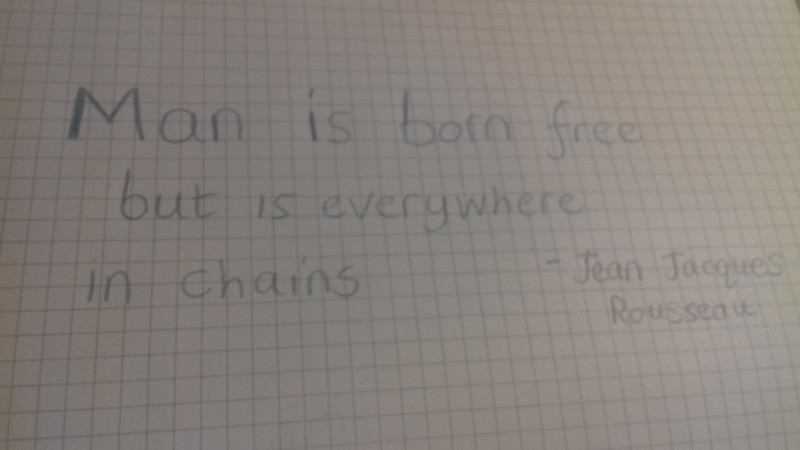 Man is born free
but is everywhere
in chains
- Jean Jacques
Rousseau